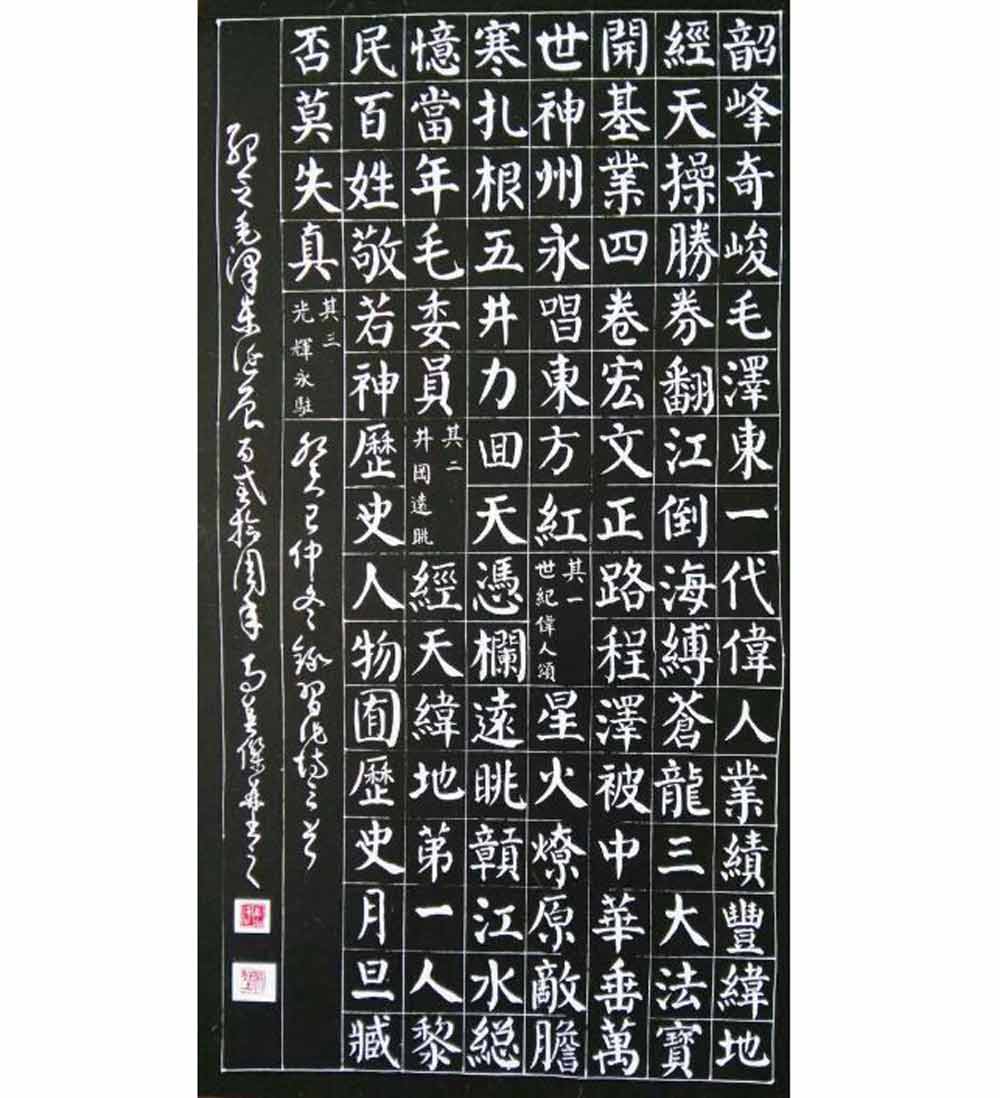 韶峰奇峻毛澤東一代偉人業績豐緯地
經天操勝券翻江倒海縛蒼龍三大法寶
開基業四卷宏文正路程澤被中華垂萬
世神州永唱東方紅
其一
世紀偉人頌
星火燎原敵膽
寒扎根五井力囬天憑欄遠眺贛江水緫
憶當年毛委員
其二
井岡遠眺
經天緯地第一人黎
民百姓敬若神歷史人物囿歷史月旦臧
否莫失真
其三
光輝永駐
癸巳仲冬錄習作詩三首
紀念毛澤東誕辰百弍拾周年 傑并書之